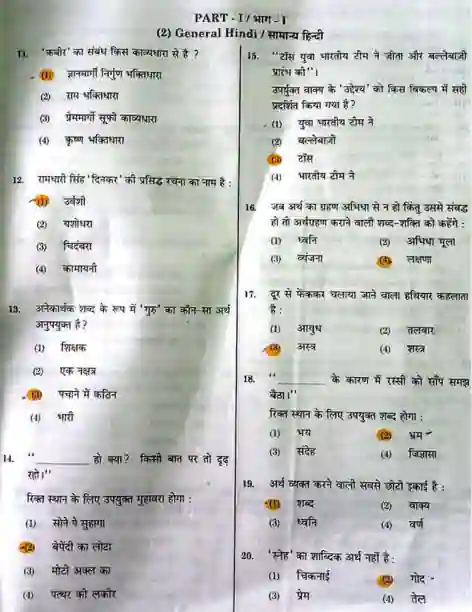 PART - I / भाग - I
(2) General Hindi / सामान्य हिन्दी
11. 'कबीर' का संबंध किस काव्यधारा से है ?
(1) ज्ञानमार्गी निर्गुण भक्तिधारा
(2) राम भक्तिधारा
(3) प्रेममार्गी सूफी काव्यधारा
(4) कृष्ण भक्तिधारा
12. रामधारी सिंह 'दिनकर' की प्रसिद्ध रचना का नाम है :
(1) उर्वशी
(2) यशोधरा
(3) चिदंबरा
(4) कामायनी
13. अनेकार्थक शब्द के रूप में 'गुरु' का कौन-सा अर्थ
अनुपयुक्त है ?
(1) शिक्षक
(2) एक नक्षत्र
(3) पचाने में कठिन
(4) भारी
14. "________ हो क्या ? किसी बात पर तो दृढ़
रहो।"
रिक्त स्थान के लिए उपयुक्त मुहावरा होगा :
(1) सोने पे सुहागा
(2) बेपेंदी का लोटा
(3) मोटी अक्ल का
(4) पत्थर की लकीर
15. "टॉस युवा भारतीय टीम ने जीता और बल्लेबाज़ी
प्रारंभ की"।
उपर्युक्त वाक्य के 'उद्देश्य' को किस विकल्प में सही
प्रदर्शित किया गया है ?
(1) युवा भारतीय टीम ने
(2) बल्लेबाज़ी
(3) टॉस
(4) भारतीय टीम ने
16. जब अर्थ का ग्रहण अभिधा से न हो किंतु उससे संबद्ध
हो तो अर्थग्रहण कराने वाली शब्द-शक्ति को कहेंगे :
(1) ध्वनि (2) अभिधा मूला
(3) व्यंजना (4) लक्षणा
17. दूर से फेंककर चलाया जाने वाला हथियार कहलाता
है :
(1) आयुध (2) तलवार
(3) अस्त्र (4) शस्त्र
18. "________ के कारण मैं रस्सी को साँप समझ
बैठा।"
रिक्त स्थान के लिए उपयुक्त शब्द होगा :
(1) भय (2) भ्रम
(3) संदेह (4) जिज्ञासा
19. अर्थ व्यक्त करने वाली सबसे छोटी इकाई है :
(1) शब्द (2) वाक्य
(3) ध्वनि (4) वर्ण
20. 'स्नेह' का शाब्दिक अर्थ नहीं है :
(1) चिकनाई (2) गोद
(3) प्रेम (4) तेल